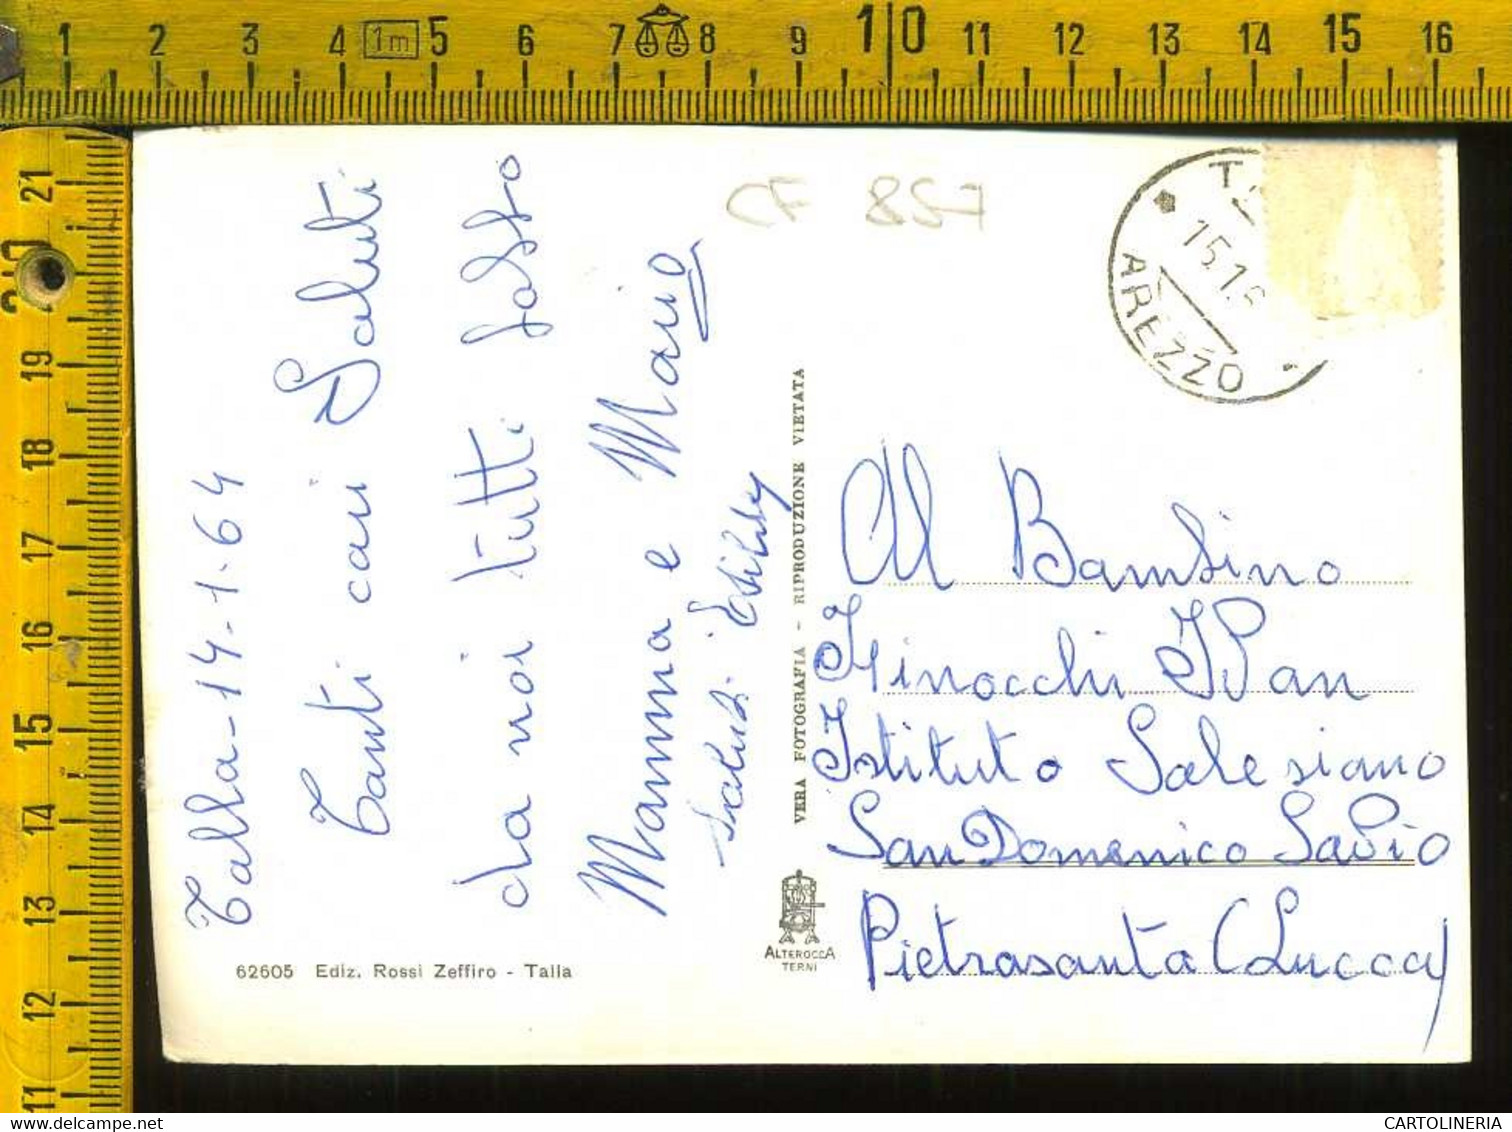 1 2 3 4 1m 5 6 7 8 9 10 11 12 13 14 15 16
21
20
19
18
17
16
15
14
13
12
11
CF 857
Talla - 14-1-64
Tanti cari Saluti
da noi tutti
Mamma e Mario
Saluti
62605 Ediz. Rossi Zeffiro - Talla
VERA FOTOGRAFIA - RIPRODUZIONE VIETATA
ALTEROCCA
TERNI
15.1.6
AREZZO
Al Bambino
Finocchi Ivan
Istituto Salesiano
San Domenico Savio
Pietrasanta (Lucca)
CARTOLINERIA